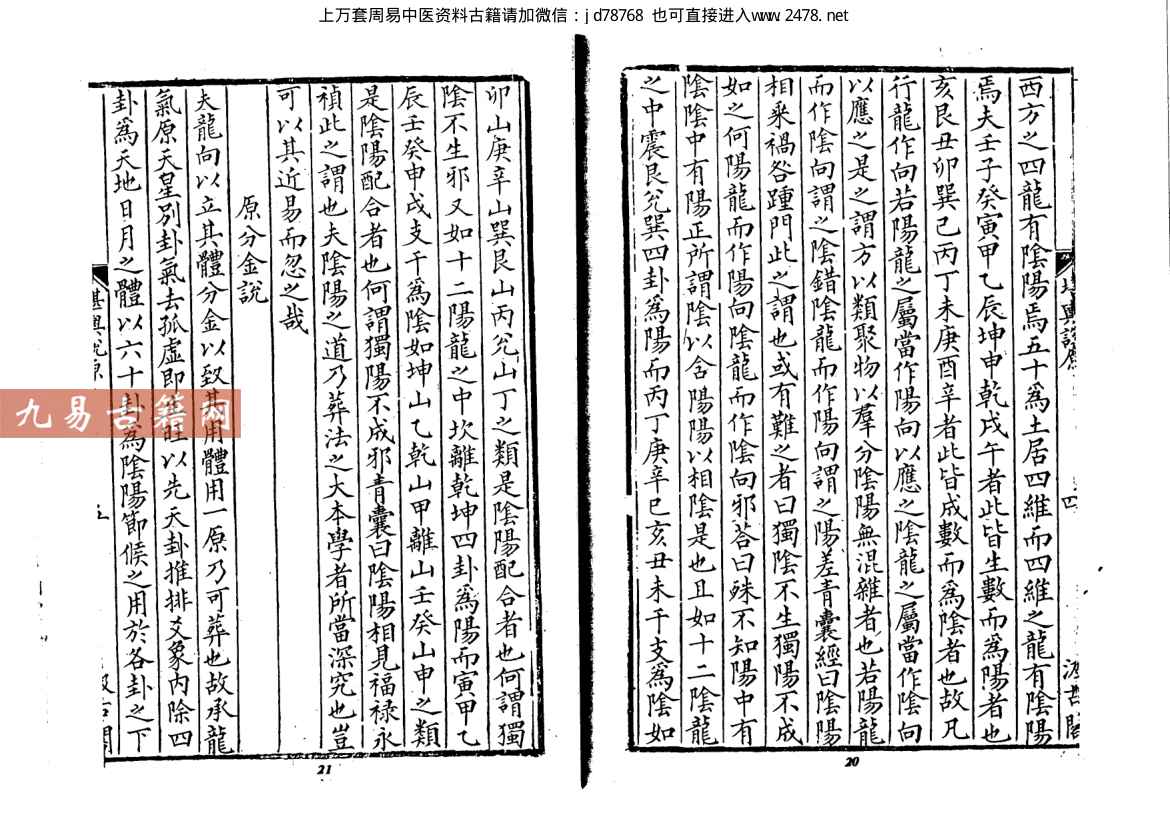 上万套周易中医资料古籍请加微信：jd78768 也可直接进入www.2478.net
西方之四龍有陰陽焉五十爲土居四維而四維之龍有陰陽
焉夫壬子癸寅甲乙辰坤申乾戌午者此皆生數而爲陽者也
亥艮丑卯巽巳丙丁未庚酉辛者此皆成數而爲陰者也故凡
行龍作向若陽龍之屬當作陽向以應之陰龍之屬當作陰向
以應之是之謂方以類聚物以羣分陰陽無混雜者也若陽龍
而作陰向謂之陰錯陰龍而作陽向謂之陽差青囊經曰陰陽
相乘禍咎踵門此之謂也或有難之者曰獨陰不生獨陽不成
如之何陽龍而作陽向陰龍而作陰向邪荅曰殊不知陽中有
陰陰中有陽正所謂陰以含陽陽以相陰是也且如十二陰龍
之中震艮兌巽四卦爲陽而丙丁庚辛巳亥丑未干支爲陰如
20
卯山庚辛山巽艮山丙兌山丁之類是陰陽配合者也何謂獨
陰不生邪又如十二陽龍之中坎離乾坤四卦爲陽而寅甲乙
辰壬癸申戌支干爲陰如坤山乙乾山甲離山壬癸山申之類
是陰陽配合者也何謂獨陽不成邪青囊曰陰陽相見福祿永
禎此之謂也夫陰陽之道乃葬法之大本學者所當深究也豈
可以其近易而忽之哉
原分金說
夫龍向以立其體分金以致其用體用一原乃可葬也故承龍
氣原天星列卦氣去孤虛即 旺以先天卦推排爻象内除四
卦爲天地日月之體以六十卦爲陰陽節候之用於各卦之下
堪輿說原
五
21
九易古籍网